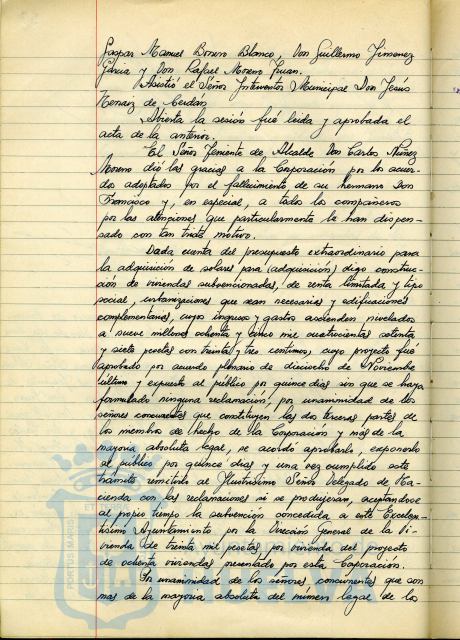 Gaspar Manuel Borrero Blanco, Don Guillermo Jimenez
Garcia y Don Rafael Moreno Juan.
Asistió el Señor Interventor Municipal Don Jesús
de Cerdán
Abierta la sesión fué leida y aprobada el
acta de la anterior.
El Señor Teniente de Alcalde Don Carlos Nuñez
Moreno dió las gracias a la Corporación por los acuer-
dos adoptados por el fallecimiento de su hermano Don
Francisco y, en especial, a todos los compañeros
por las atenciones que particularmente le han dispen-
sado con tan triste motivo.
Dada cuenta del presupuesto extraordinario para
la adquisición de solares para (adquisición) digo construc-
ción de viviendas subvencionadas, de renta limitada y tipo
social, urbanizaciones que sean necesarias y edificaciones
complementarias, cuyos ingresos y gastos ascienden nivelados
a nueve millones ochenta y cinco mil cuatrocientas setenta
y siete pesetas con treinta y tres centimos, cuyo proyecto fué
aprobado por acuerdo plenario de dieciocho de Noviembre
último y expuesto al público por quince dias sin que se haya
formulado ninguna reclamación, por unanimidad de los
señores concurrentes que constituyen las dos terceras partes de
los miembros de hecho de la Corporación y más de la
mayoria absoluta legal, se acordó aprobarlo, exponerlo
al público por quince dias y una vez cumplido este
trámite remitirlo al Ilustrisimo Señor Delegado de Ha-
cienda con las reclamaciones si se produjeran, aceptandose
al propio tiempo la subvención concedida a este Excelen-
tisimo Ayuntamiento por la Dirección General de la Vi-
vienda de treinta mil pesetas por vivienda del proyecto
de ochenta viviendas presentado por esta Corporación.
Por unanimidad de los señores concurrentes que son
mas de la mayoria absoluta del número legal de los